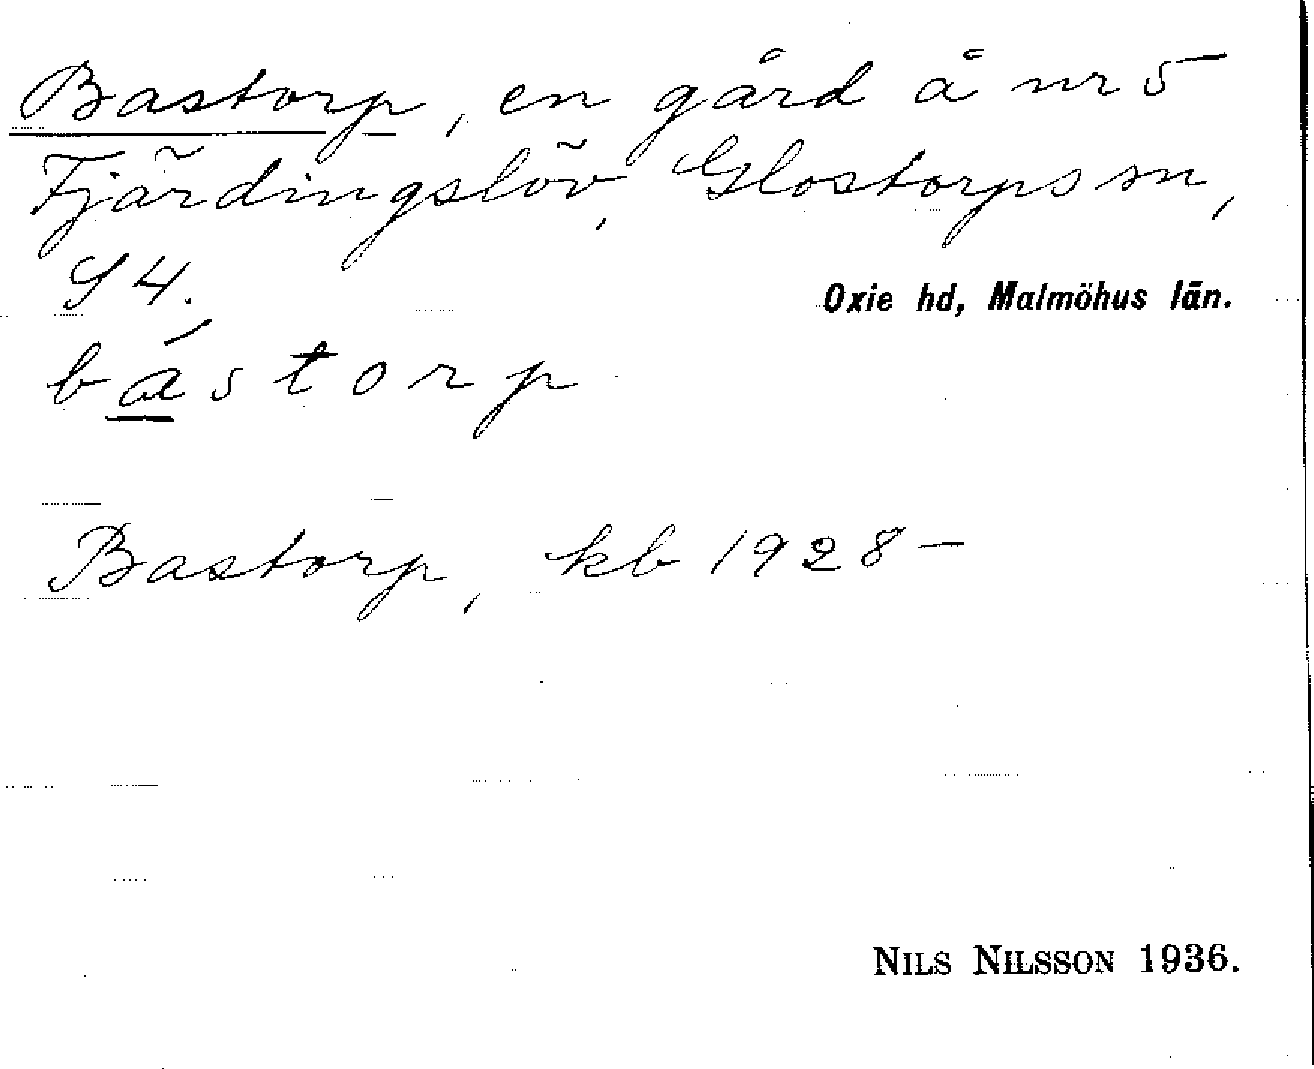 Bastorp, en gård å nr 5
Fjärdingslöv, Glostorps sn,
S4.
Oxie hd, Malmöhus län.
bástorp
Bastorp, kb 1928–
NILS NILSSON 1936.